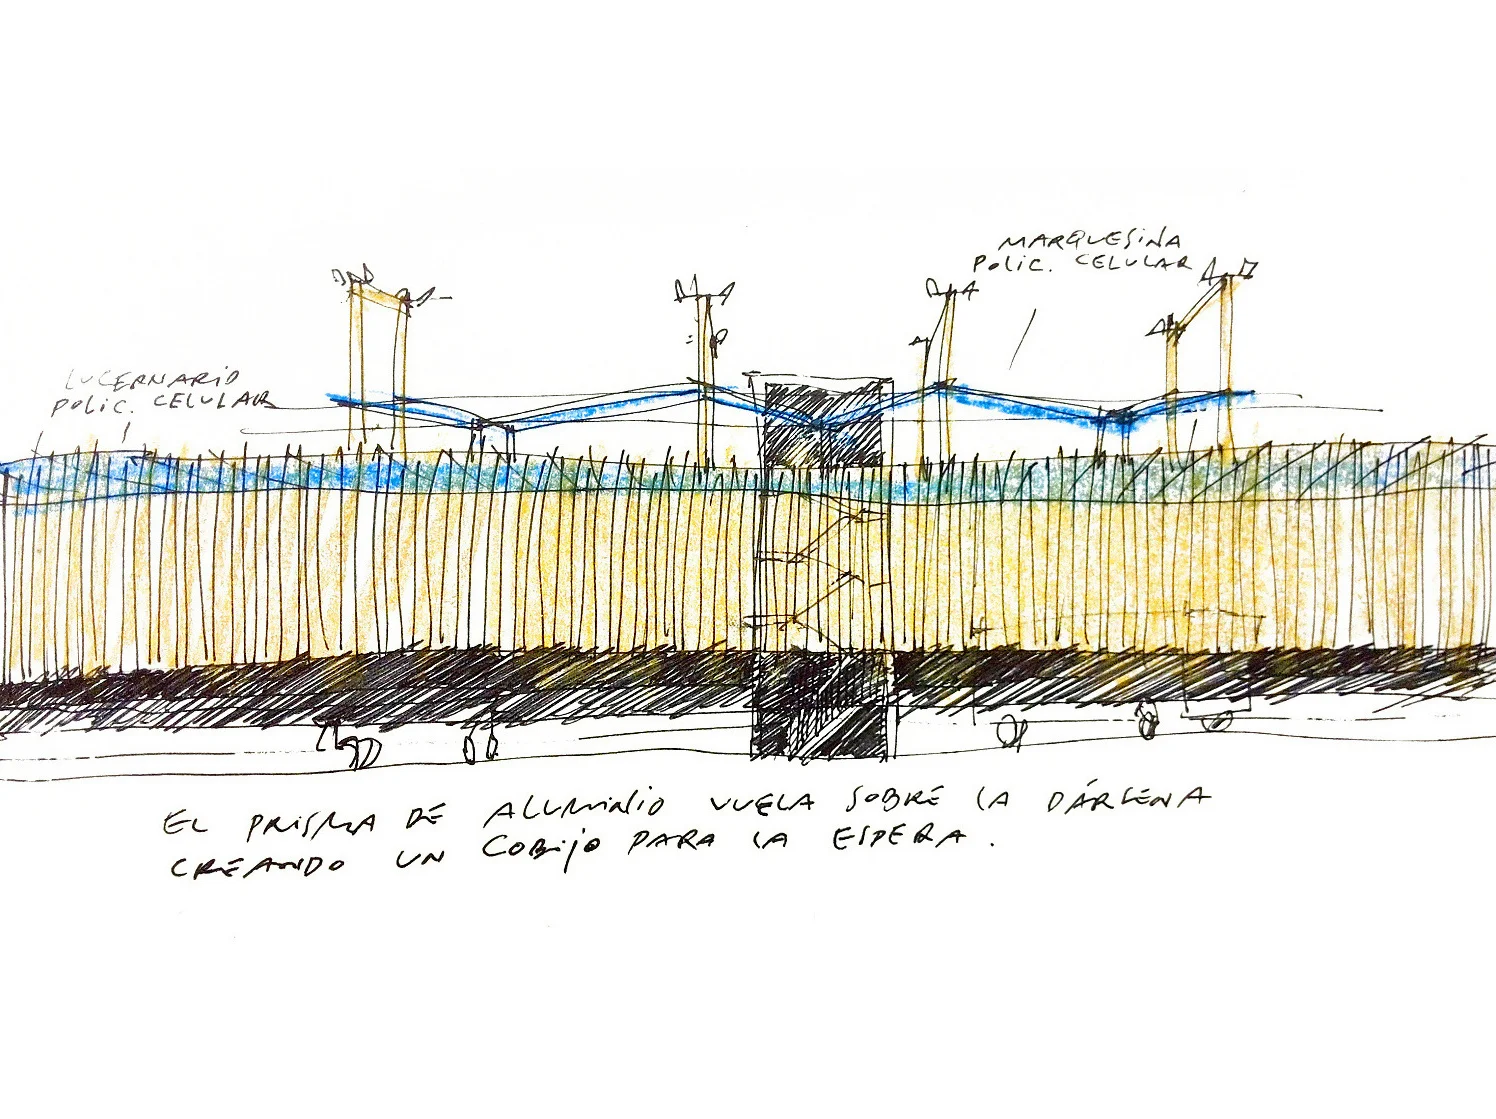 MARQUESINA
POLIC. CELULAR
LUCERNARIO
POLIC. CELULAR
EL PRISMA DE ALUMINIO VUELA SOBRE LA DÁRSENA
CREANDO UN COBIJO PARA LA ESPERA.